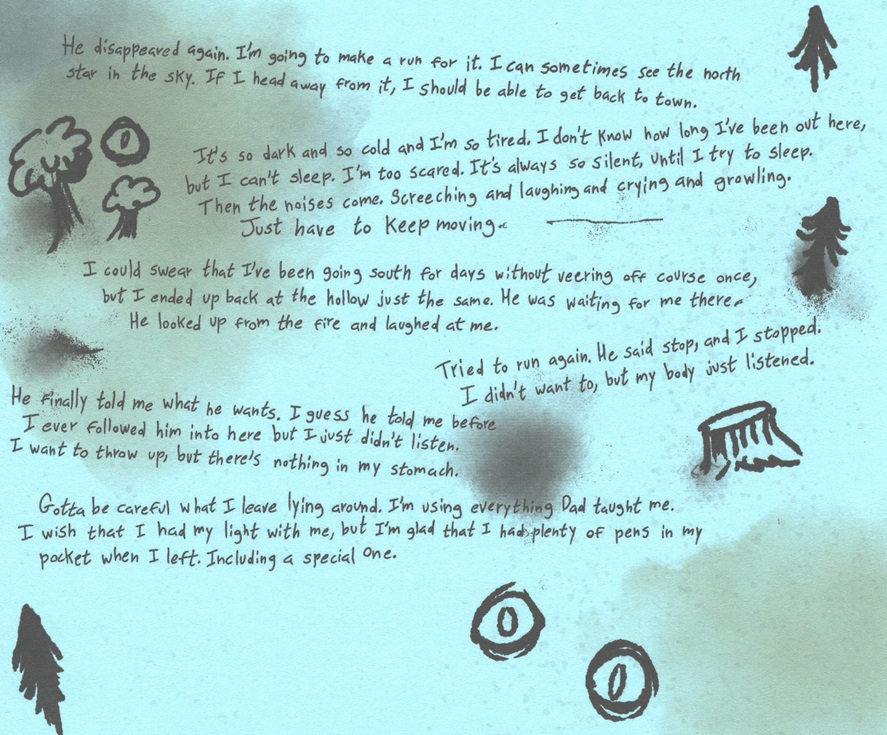 He disappeared again. I'm going to make a run for it. I can sometimes see the north
star in the sky. If I head away from it, I should be able to get back to town.
It's so dark and so cold and I'm so tired. I don't know how long I've been out here,
but I can't sleep. I'm too scared. It's always so silent, until I try to sleep.
Then the noises come. Screeching and laughing and crying and growling.
Just have to keep moving.
I could swear that I've been going south for days without veering off course once,
but I ended up back at the hollow just the same. He was waiting for me there.
He looked up from the fire and laughed at me.
Tried to run again. He said stop, and I stopped.
I didn't want to, but my body just listened.
He finally told me what he wants. I guess he told me before
I ever followed him into here but I just didn't listen.
I want to throw up, but there's nothing in my stomach.
Gotta be careful what I leave lying around. I'm using everything Dad taught me.
I wish that I had my light with me, but I'm glad that I had plenty of pens in my
pocket when I left. Including a special one.